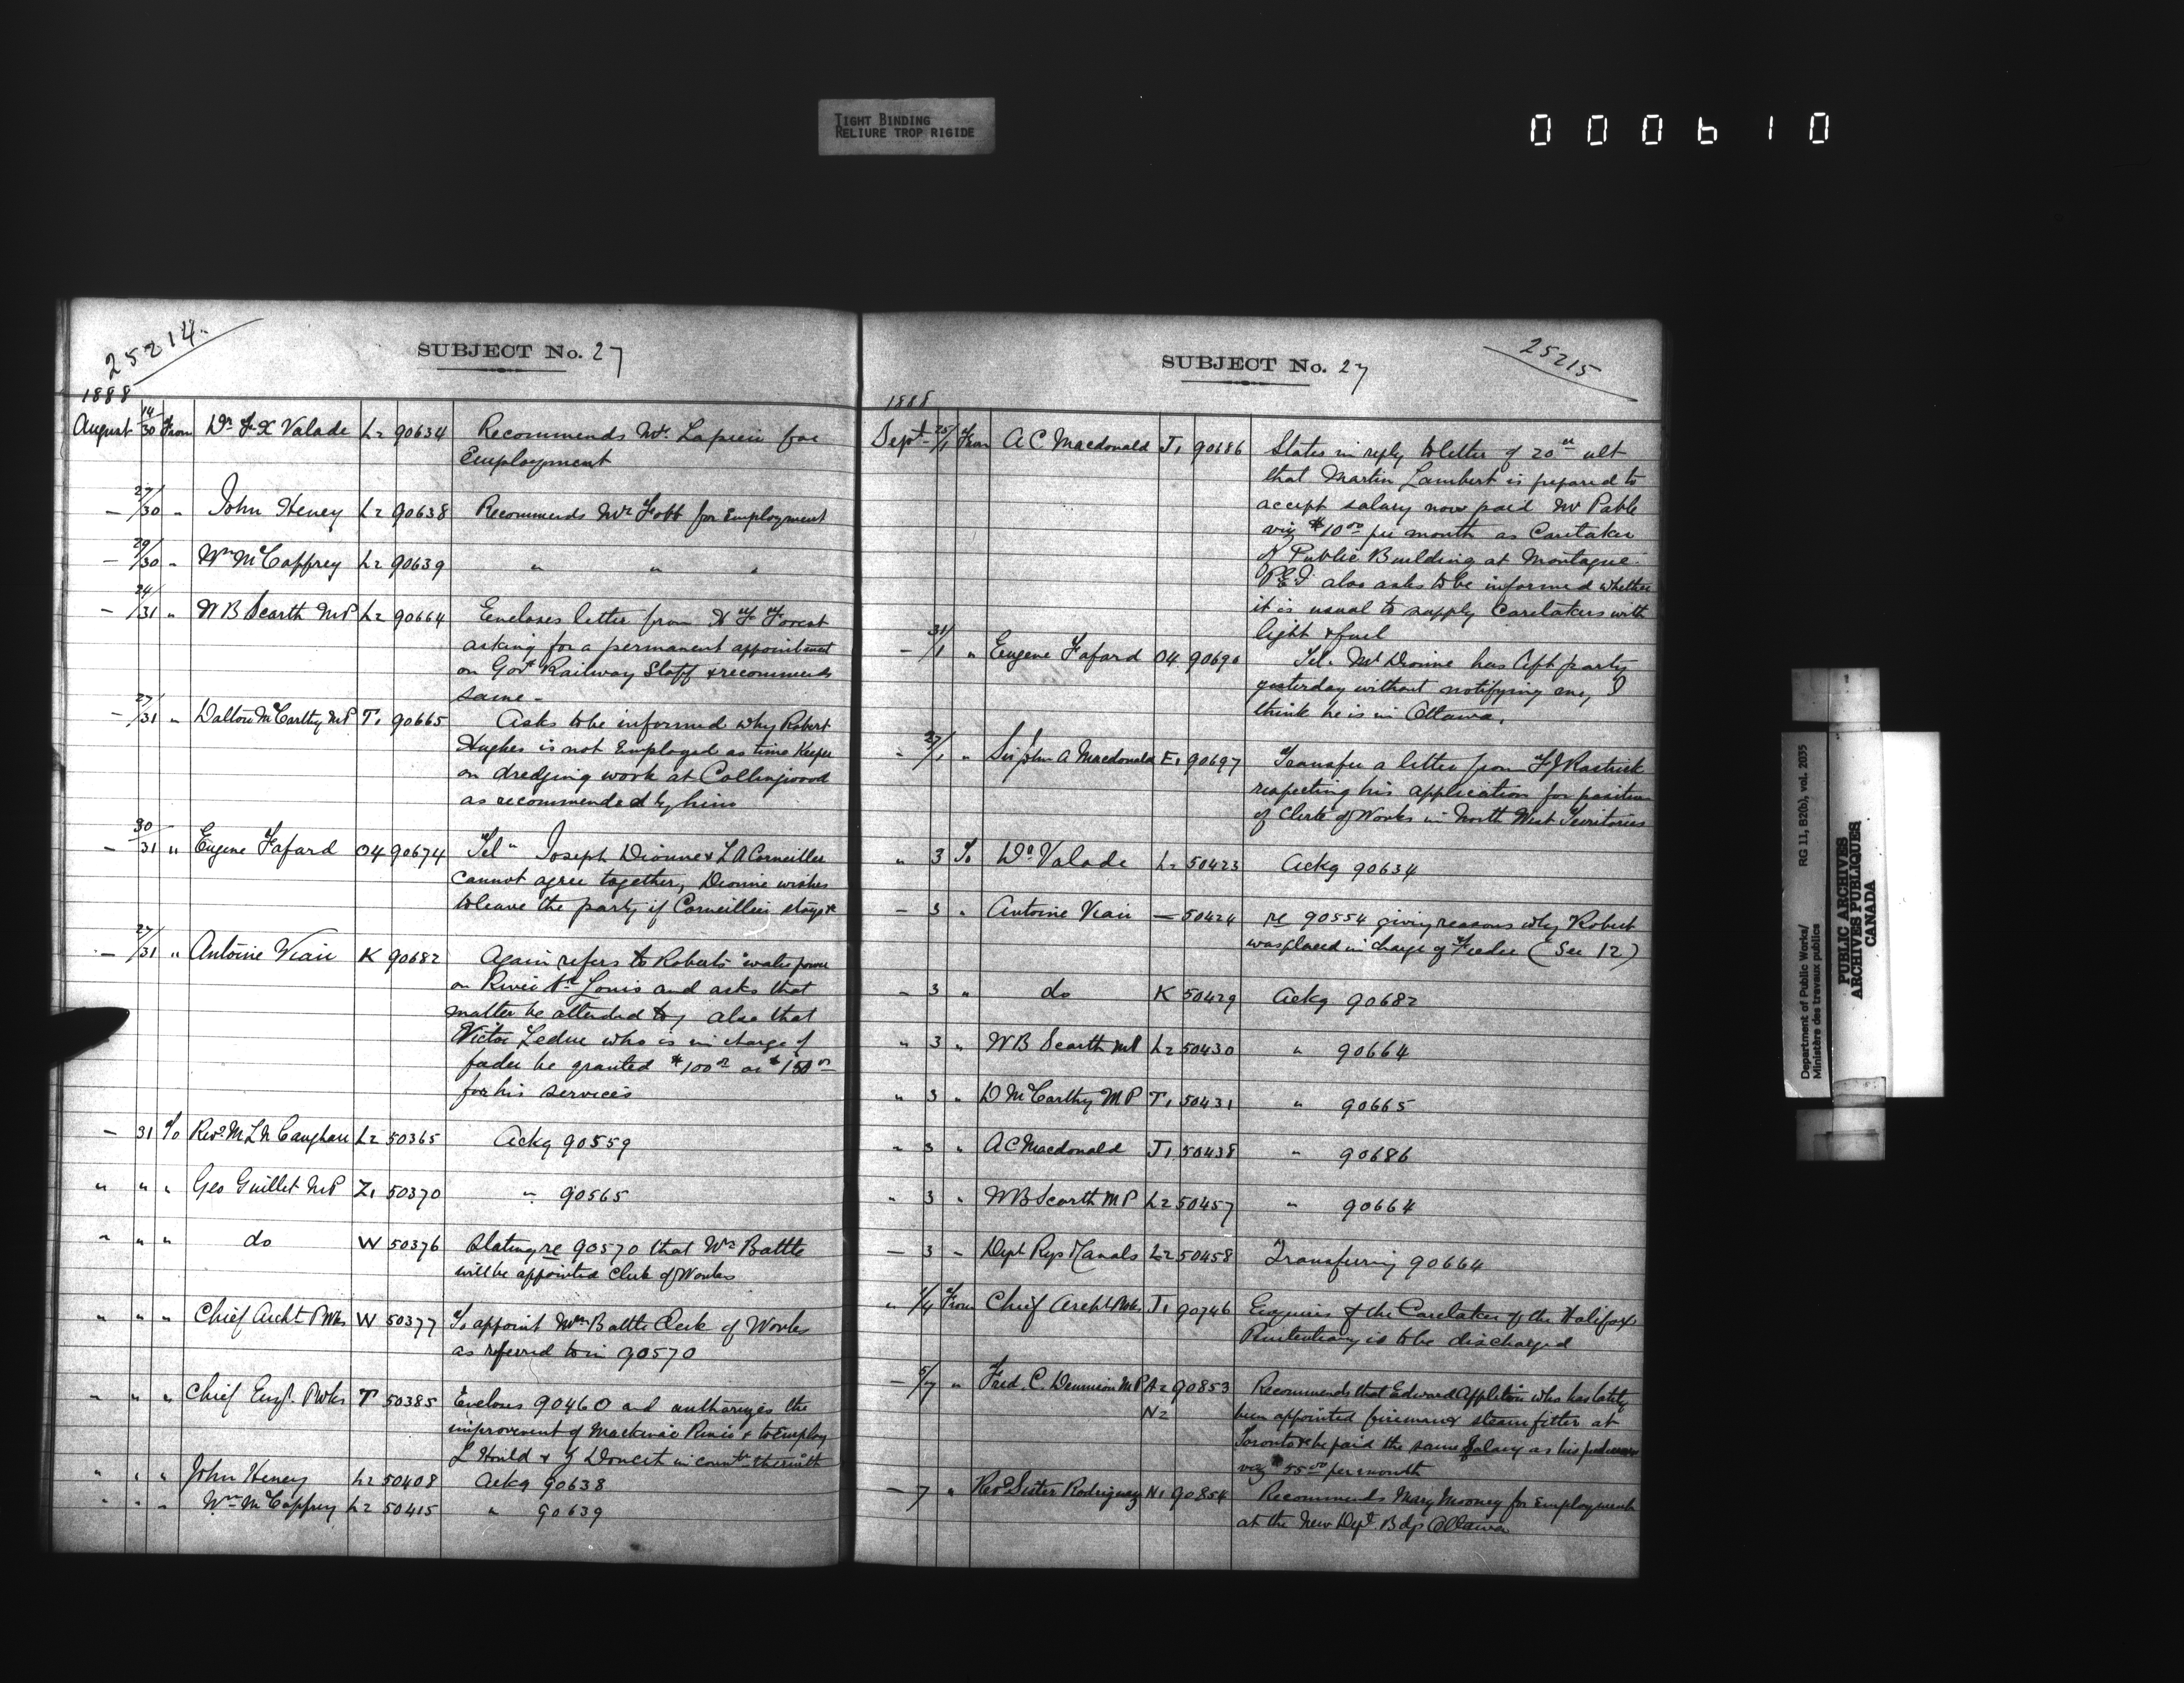 TIGHT BINDING
RELIURE TROP RIGIDE
000610
25214.
SUBJECT No. 27
1888
August 14/30 From Dr F X Valade L2 90634 Recommends Mr. Lapierre for
Employment
— 27/30 " John Heney L2 90638 Recommends Mr Fobb for Employment
— 29/30 " Wm McCaffrey L2 90639 " " "
— 24/31 " W B Scarth MP L2 90664 Encloses letter from H F Forrest
asking for a permanent appointment
on Govt Railway Staff & recommends
same -
— 27/31 " Dalton McCarthy MP T1 90665 Asks to be informed why Robert
Hughes is not Employed as time Keeper
on dredging work at Collingwood
as recommended by him
— 30/31 " Eugene Fafard O4 90674 Tel" Joseph Dionne & L A Corneillier
cannot agree together, Dionne wishes
to leave the party if Corneillier stays
— 27/31 " Antoine Viau K 90682 Again refers to Roberts water power
on River St Louis and asks that
matter be attended to, also that
Victor Leduc who is in charge of
feeder be granted $100 00 or $150 00
for his services
— 31 To Revd M L N L2 50365 Ackg 90559
" " " Geo Guillet MP Z1 50370 " 90565
" " " do W 50376 Stating re 90570 that Wm Battle
will be appointed Clerk of Works
" " " Chief Archt PWks W 50377 To appoint Wm Battle Clerk of Works
as referred to in 90570
" " " Chief Engr. PWks T 50385 Encloses 90460 and authorizes the
improvement of & to Employ
L & J Doucet in therewith
" " " John Heney L2 50408 Ackg 90638
" " " Wm McCaffrey L2 50415 " 90639
25215
SUBJECT No. 27
1888
Sept - 25/1 From A C Macdonald J1 90686 States in reply to letter of 20th ult
that Martin Lambert is prepared to
accept salary now paid Mr
viz $10 00 per month as Caretaker
of Public Building at Montague
P.E.I. also asks to be informed whether
it is usual to supply Caretakers with
light & fuel
— 31/1 " Eugene Fafard O4 90690 Tel. Mr Dionne has left party
yesterday without notifying me, I
think he is in Ottawa.
- 27/1 " Sir John A Macdonald E1 90697 Transfer a letter from F J Rastrick
respecting his application for position
of Clerk of Works in North West Territories
" 3 To Dr Valade L2 50423 Ackg 90634
— 3 " Antoine Viau — 50424 re 90554 giving reasons why Robert
was placed in charge of Feeder (See 12)
— 3 " do K 50429 Ackg 90682
" 3 " W B Scarth MP L2 50430 " 90664
" 3 " D McCarthy MP T1 50431 " 90665
" 3 " A C Macdonald J1 50438 " 90686
" 3 " W B Scarth MP L2 50457 " 90664
— 3 " Dept Rys & Canals L2 50458 Transferring 90664
" 1/4 From Chief Archt PWks J1 90746 Enquires if the Caretaker of the Halifax
Penitentiary is to be discharged
— 5/7 " Fred. C. Dennison MP A2 90853 Recommends that Edward Appleton who has lately
N2 been appointed fireman & steam fitter at
Toronto be paid the same Salary as his predecessor
viz $55 00 per month
— 7 " Revd Sister Rodriguez N1 90854 Recommends Mary Mooney for Employment
at the New Dept. Bdg Ottawa
Department of Public Works/ RG 11, B2(b), vol. 2035
Ministère des travaux publics
PUBLIC ARCHIVES
ARCHIVES PUBLIQUES
CANADA